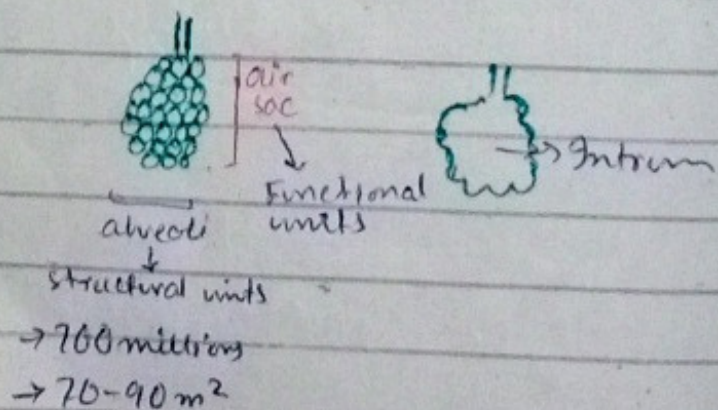 air
sac
Functional
units
alveoli
structural units
→ 700 millions
→ 70-90 m²
→ Antrum